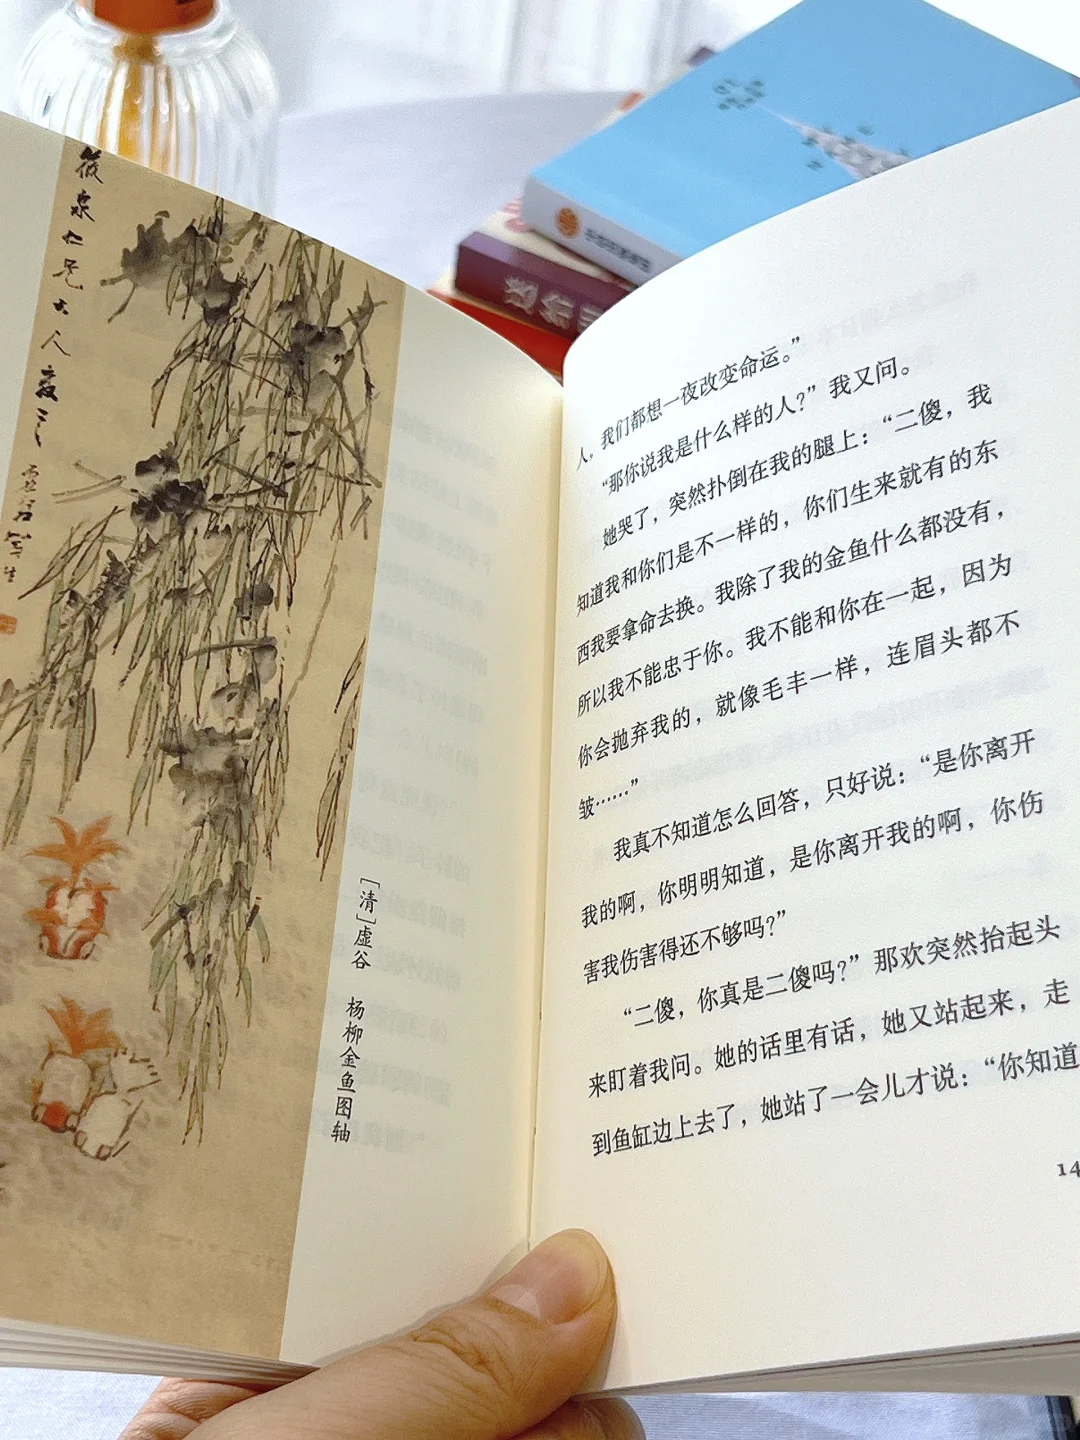 筱泉仁兄大人教之
[清]虚谷 杨柳金鱼图轴
送给
人。我们都想一夜改变命运。”
“那你说我是什么样的人?”我又问。
她哭了,突然扑倒在我的腿上:“二傻,我
知道我和你们是不一样的,你们生来就有的东
西我要拿命去换。我除了我的金鱼什么都没有,
所以我不能忠于你。我不能和你在一起,因为
你会抛弃我的,就像毛丰一样,连眉头都不
皱……”
我真不知道怎么回答,只好说:“是你离开
我的啊,你明明知道,是你离开我的啊,你伤
害我伤害得还不够吗?”
“二傻,你真是二傻吗?”那欢突然抬起头
来盯着我问。她的话里有话,她又站起来,走
到鱼缸边上去了,她站了一会儿才说:“你知道
14